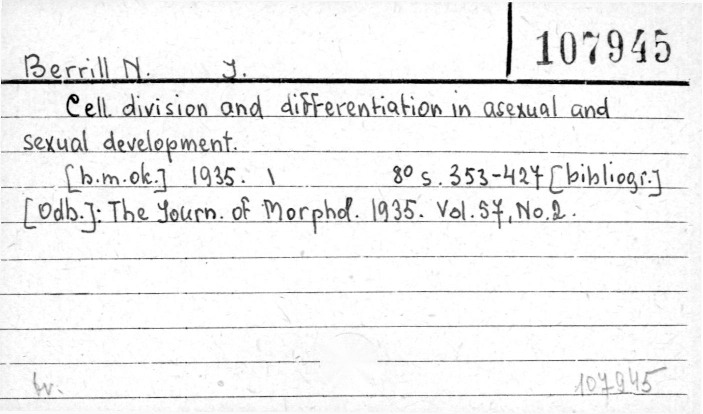 107945
Berrill N. J.
Cell. division and differentiation in asexual and
sexual development.
[b.m.ok.] 1935. \ 8° s. 353-427 [bibliogr.]
[Odb.]: The Journ. of Morphol. 1935. Vol. 57, No. 2.
107945